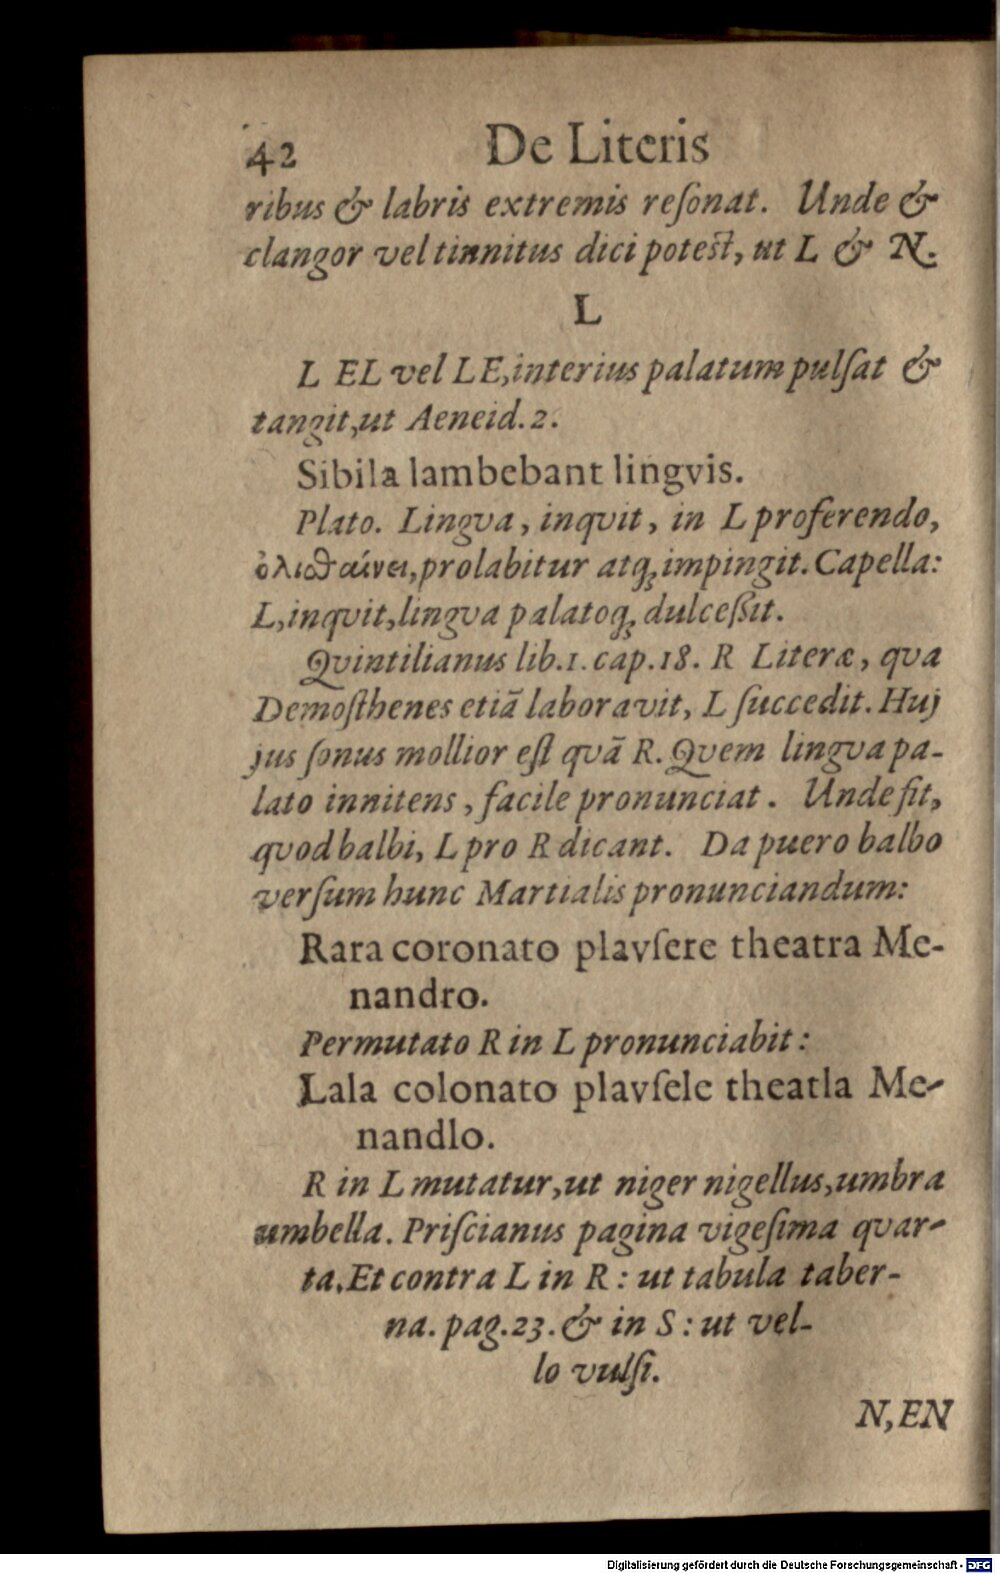 42 De Literis
ribus & labris extremis reſonat. Unde &
clangor vel tinnitus dici poteſt, ut L & N.
L
L EL vel LE, interius palatum pulſat &
tangit, ut Aeneid. 2.
Sibila lambebant lingvis.
Plato. Lingva, inqvit, in L proferendo,
ὀλισθαίνει, prolabitur atq; impingit. Capella:
L, inqvit, lingva palatoq; dulceſsit.
Qvintilianus lib. 1. cap. 18. R Literæ, qva
Demoſthenes etiã laboravit, L ſuccedit. Huj
jus ſonus mollior eſt quã R. Qvem lingva pa-
lato innitens, facile pronunciat. Unde fit,
qvod balbi, L pro R dicant. Da puero balbo
verſum hunc Martialis pronunciandum:
Rara coronato plavſere theatra Me-
nandro.
Permutato R in L pronunciabit:
Lala colonato plavſele theatla Me-
nandlo.
R in L mutatur, ut niger nigellus, umbra
umbella. Priſcianus pagina vigeſima qvar-
ta. Et contra L in R: ut tabula taber-
na. pag. 23. & in S: ut vel-
lo vulſi.
N, EN
Digitalisierung gefördert durch die Deutsche Forschungsgemeinschaft - DFG